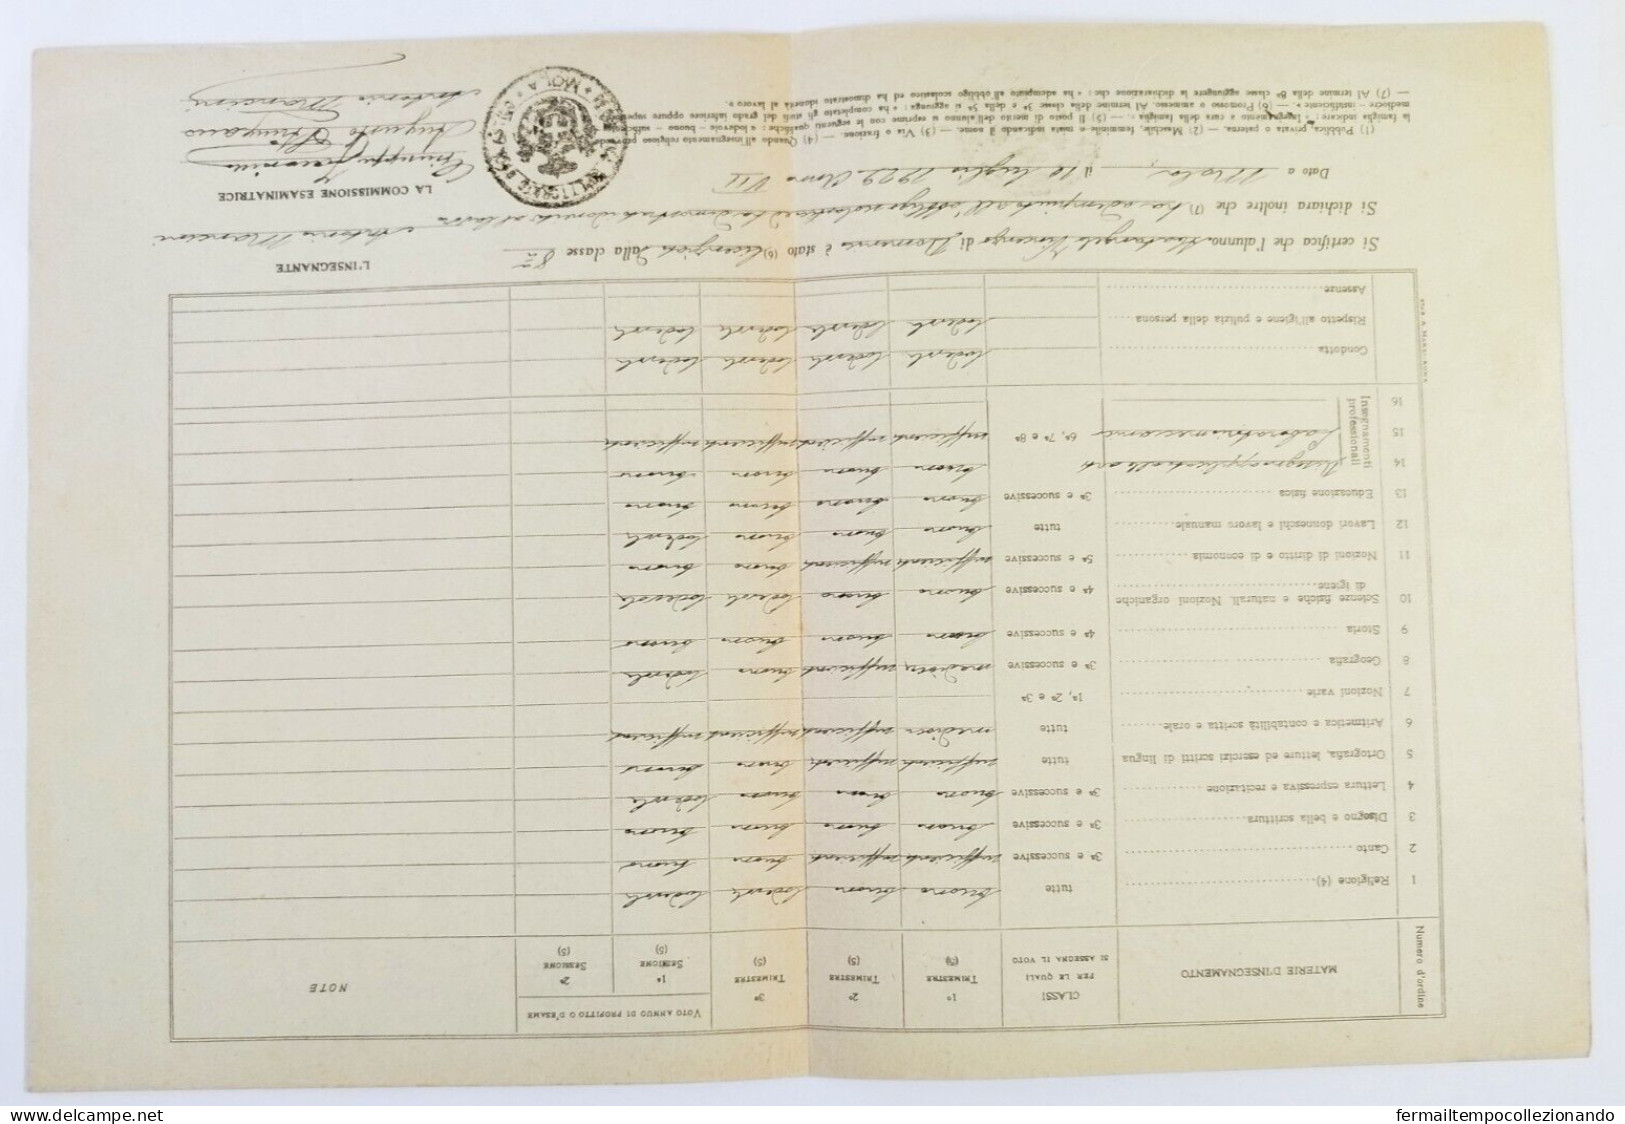 Numero d'ordine
MATERIE D'INSEGNAMENTO
CLASSI PER LE QUALI SI ASSEGNA IL VOTO
1º TRIMESTRE (5)
2º TRIMESTRE (5)
3º TRIMESTRE (5)
VOTO ANNUO DI PROFITTO O D'ESAME
1ª SESSIONE (5)
2ª SESSIONE (5)
NOTE
1 Religione (4) tutte buono buono lodevole lodevole
2 Canto 3ª e successive sufficiente sufficiente buono buono
3 Disegno e bella scrittura 3ª e successive buono buono buono buono
4 Lettura espressiva e recitazione 3ª e successive buono buono buono lodevole
5 Ortografia, letture ed esercizi scritti di lingua tutte sufficiente sufficiente buono buono
6 Aritmetica e contabilità scritta e orale tutte mediocre sufficiente sufficiente sufficiente
7 Nozioni varie 1ª, 2ª e 3ª
8 Geografia 3ª e successive mediocre sufficiente buono lodevole
9 Storia 4ª e successive buono buono buono buono
10 Scienze fisiche e naturali. Nozioni organiche
di igiene 4ª e successive buono buono lodevole lodevole
11 Nozioni di diritto e di economia 5ª e successive sufficiente sufficiente buono buono
12 Lavori donneschi e lavoro manuale tutte buono buono buono lodevole
13 Educazione fisica 3ª e successive buono buono buono buono
14 Insegnamenti professionali Disegno applicato alle arti buono buono buono buono
15 Laboratorio meccanico 6ª, 7ª e 8ª sufficiente sufficiente sufficiente sufficiente
16
Condotta lodevole lodevole lodevole lodevole
Rispetto all'igiene e pulizia della persona lodevole lodevole lodevole lodevole
Assenze
Si certifica che l'alunno Vincenzo di Domenico è stato (6) licenziato dalla classe 8ª
L'INSEGNANTE
Antonio Mancini
Si dichiara inoltre che (7) ha adempiuto all'obbligo scolastico ed ha dimostrato idoneità al lavoro
Dato a Mola il 10 luglio 1929 Anno VII
LA COMMISSIONE ESAMINATRICE
Giuseppe
Augusto
Antonio Mancini
MOLA
(1) Pubblica, privata o paterna. — (2) Maschile, femminile o mista indicando il nome. — (3) Via o frazione. — (4) Quando all'insegnamento religioso
la famiglia indicare: « Insegnamento a cura della famiglia ». — (5) Il posto di merito dell'alunno si esprime con le seguenti qualifiche: « lodevole - buono - sufficiente
mediocre - insufficiente ». — (6) Promosso o ammesso. Al termine della classe 3ª e della 5ª si aggiunga: « ha completato gli studi del grado inferiore oppure
— (7) Al termine della 8ª classe aggiungere la dichiarazione che: « ha adempiuto all'obbligo scolastico ed ha dimostrato idoneità al lavoro ».
delcampe.net
fermailtempocollezionando